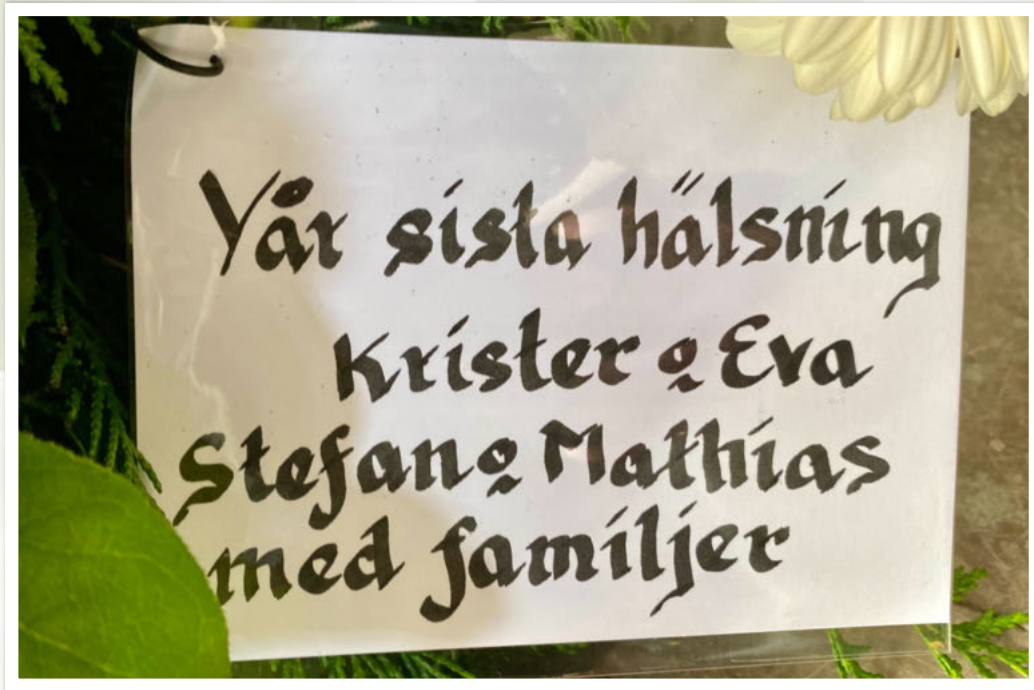 Vår sista hälsning
Krister o Eva
Stefan o Mathias
med familjer